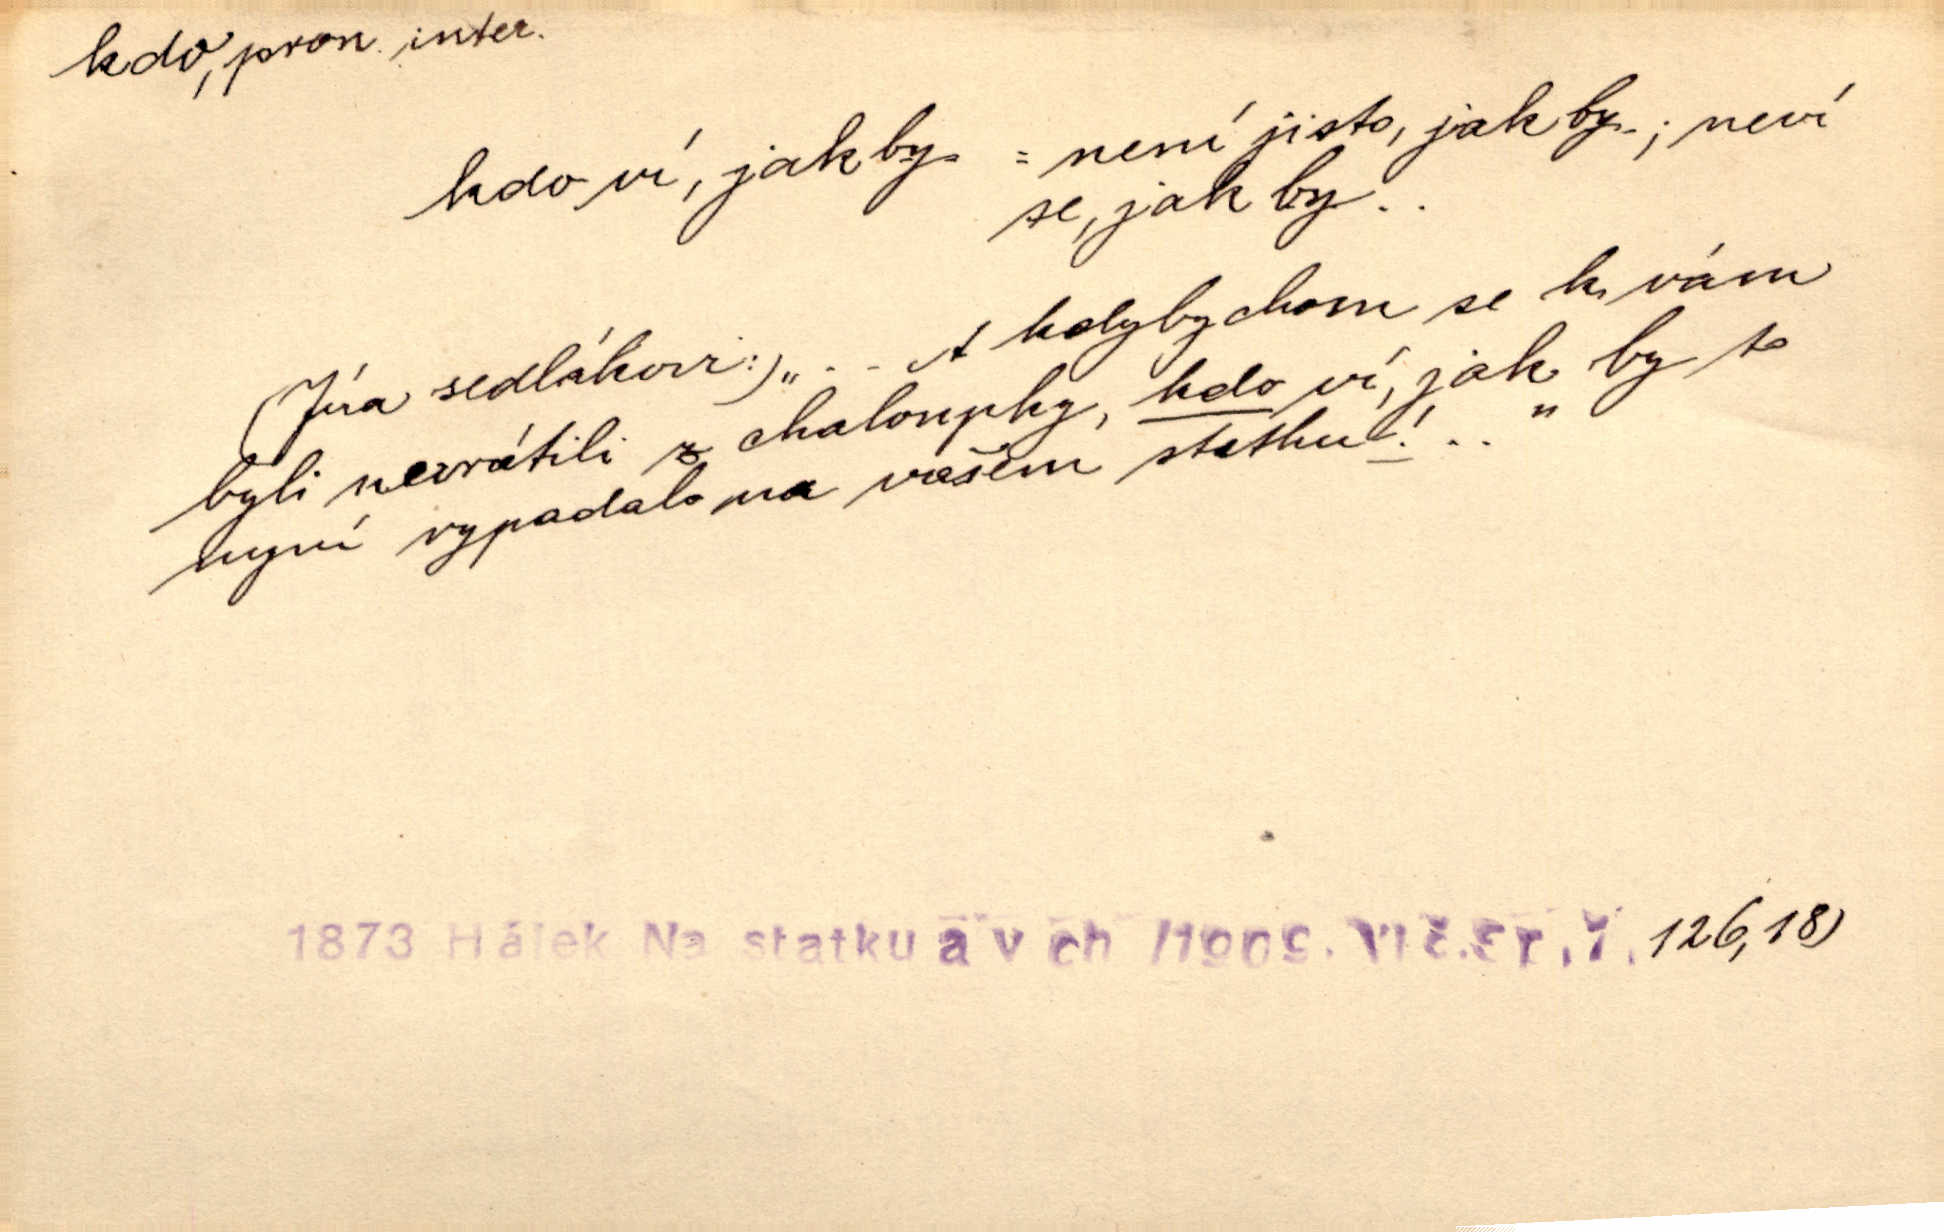 kdo, pron. inter.
kdo ví, jak by.. = není jisto, jak by..; neví
se, jak by..
(Jíra sedlákovi:) „... A kdybychom se k vám
byli nevrátili z chaloupky, kdo ví, jak by to
nyní vypadalo na vašem statku! ..."
1873 Hálek Na statku a v ch /1905. Vlč.Sr.I. 126,18)